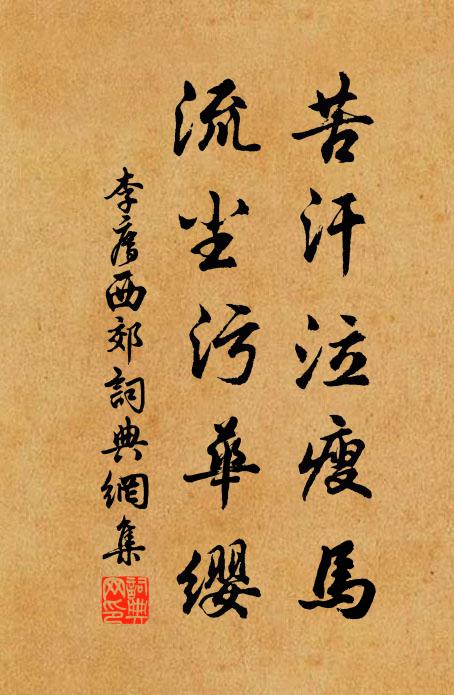 苦汗泣瘦馬
流尘污華纓
李廌西郊詞典網集
詞典网印